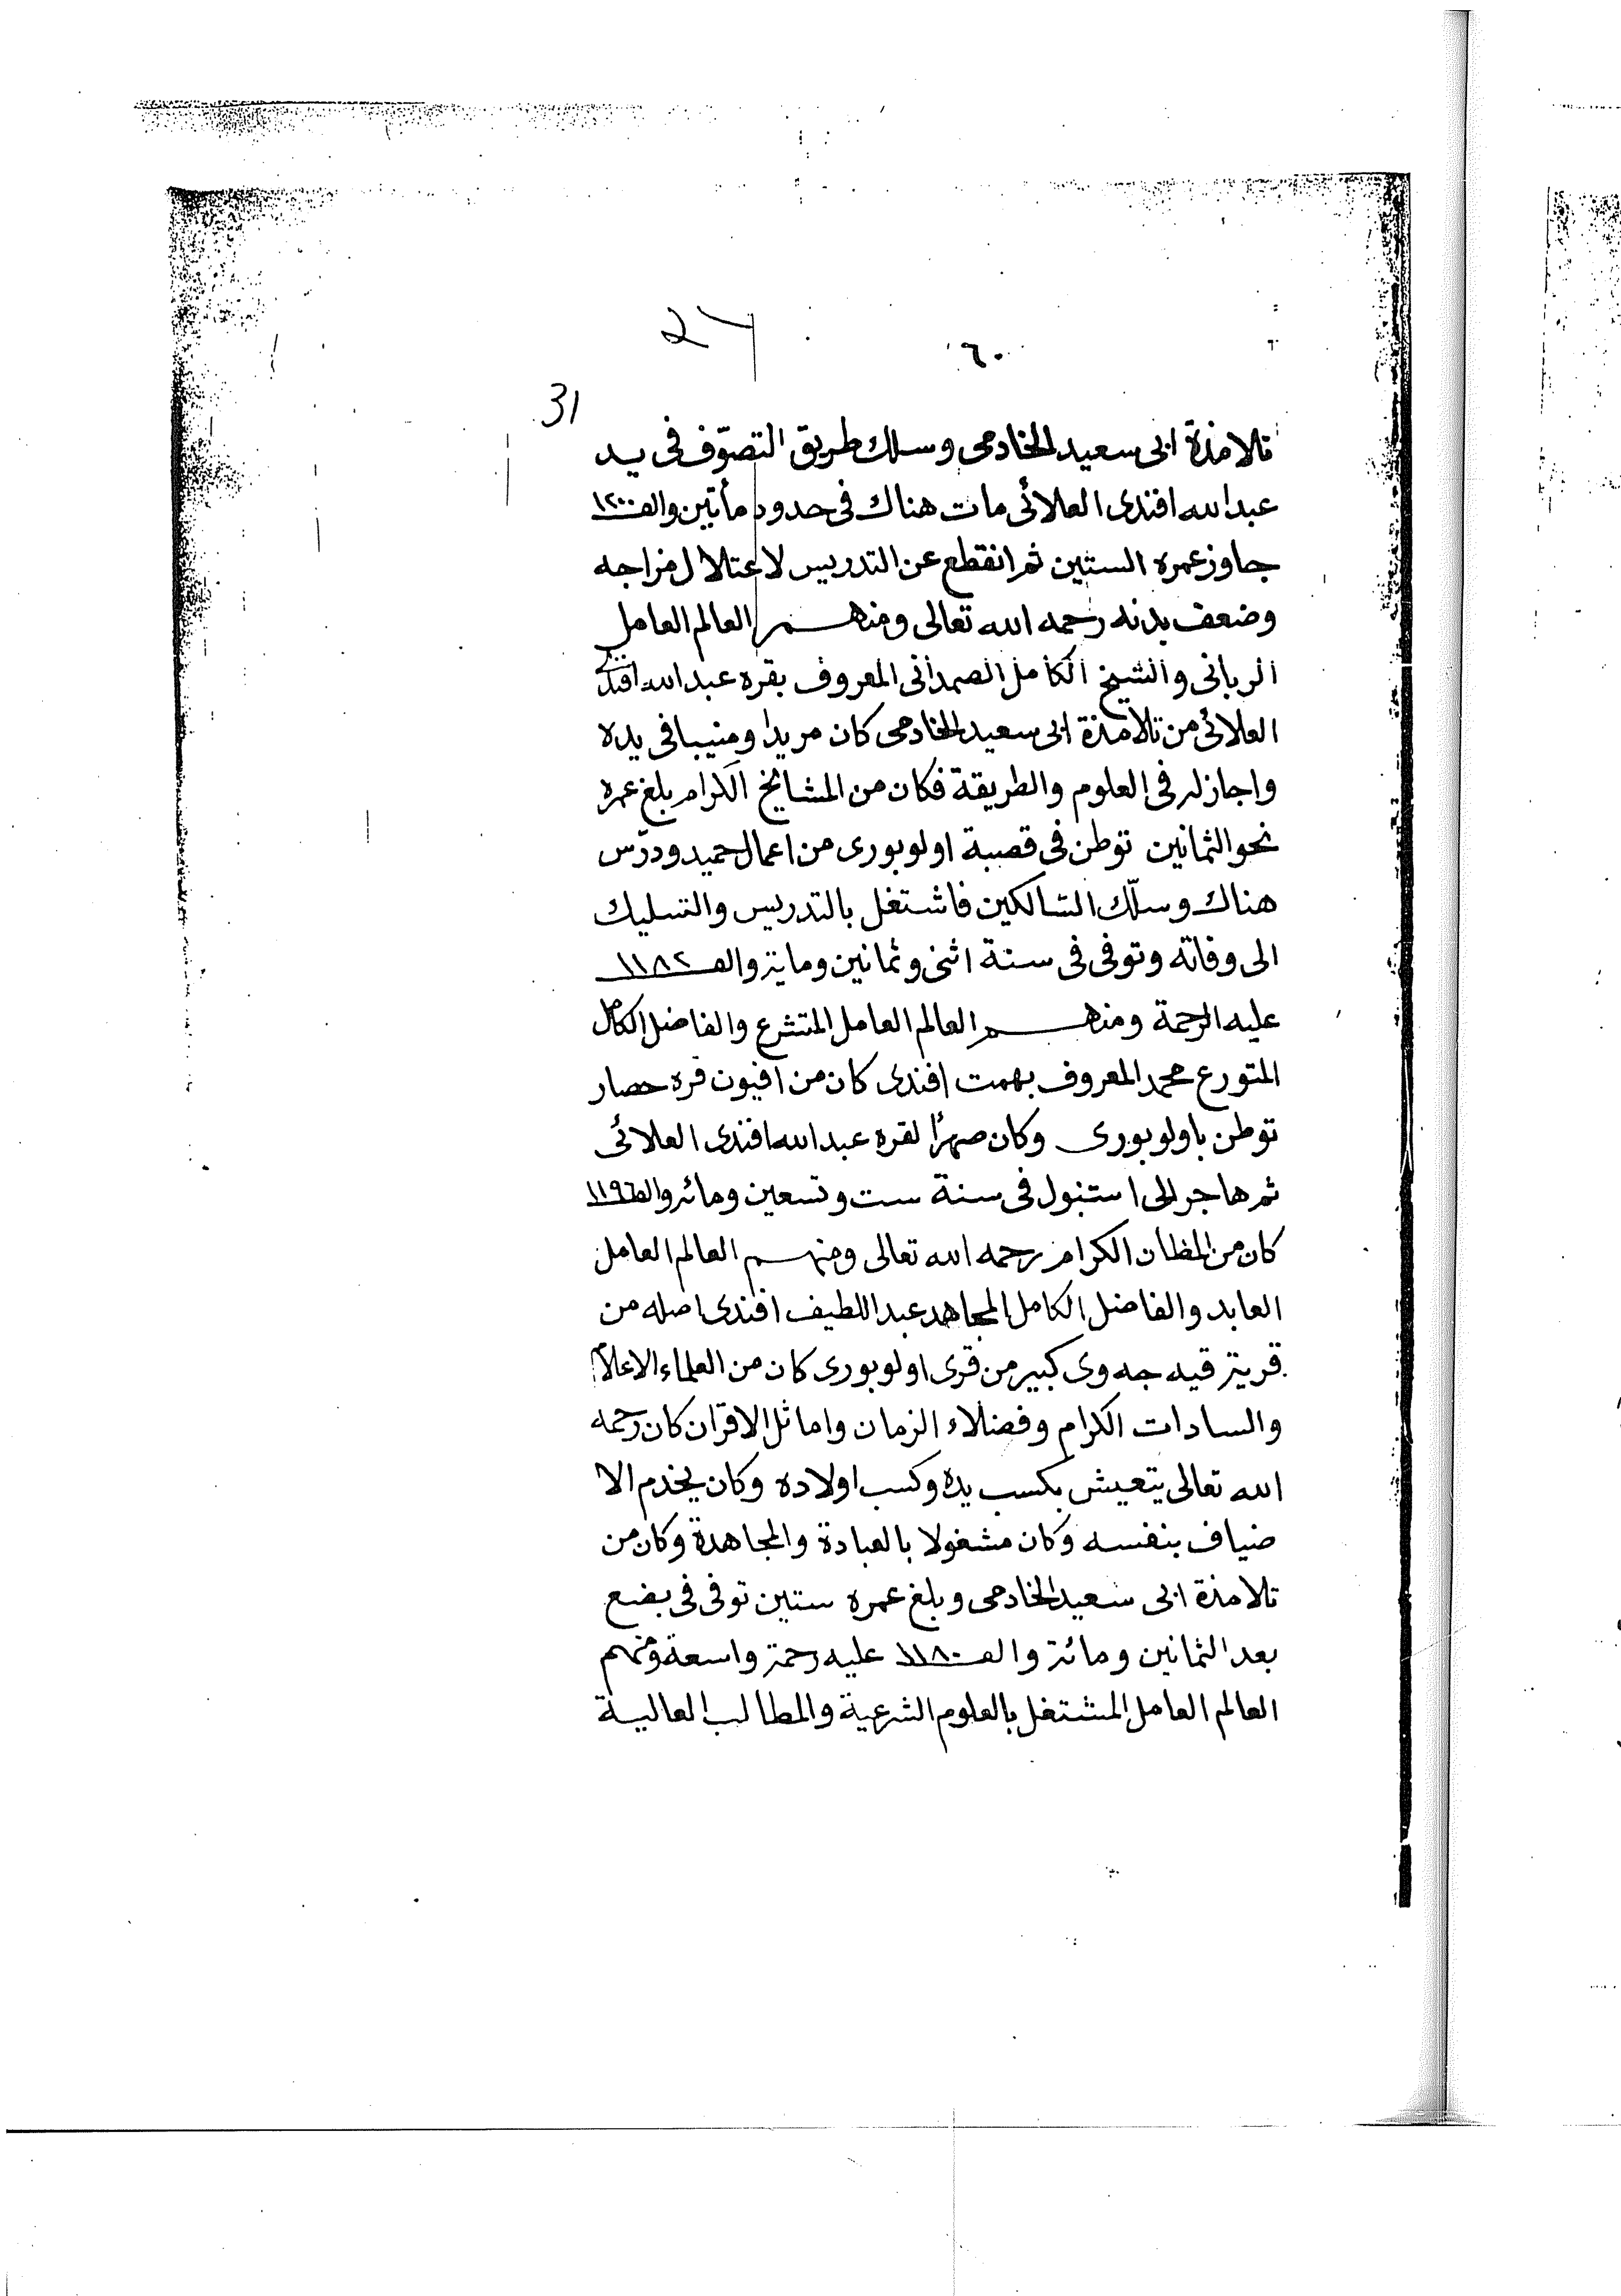 ٦٠
31
تلامذة ابى سعيد الخادمى وسلك طريق التصوّف فى يد
عبد الله افندى العلائى مات هناك فى حدود مأتين والف ١٢٠٠
جاوز عمره الستين ثم انقطع عن التدريس لاعتلال مزاجه
وضعف بدنه رحمه الله تعالى ومنهم العالم العامل
الربانى والشيخ الكامل الصمدانى المعروف بقره عبد الله افندى
العلائى من تلامذة ابى سعيد الخادمى كان مريدا ومنيبا فى يده
واجاز له فى العلوم والطريقة فكان من المشايخ الكرام بلغ عمره
نحو الثمانين توطن فى قصبة اولوبورى من اعمال حميد ودرّس
هناك وسلّك السالكين فاشتغل بالتدريس والتسليك
الى وفاته وتوفى فى سنة اثنى وثمانين وماية والف ١١٨٢
عليه الرحمة ومنهم العالم العامل المتشرع والفاضل الكامل
المتورع محمد المعروف بهمت افندى كان من افيون قره حصار
توطن باولوبورى وكان صهرًا لقره عبد الله افندى العلائى
ثم هاجر الى استنبول فى سنة ست وتسعين ومائة والف ١١٩٦
كان من المظان الكرام رحمه الله تعالى ومنهم العالم العامل
العابد والفاضل الكامل المجاهد عبد اللطيف افندى اصله من
قرية قيه جه وى كبير من قرى اولوبورى كان من العلماء الاعلام
والسادات الكرام وفضلاء الزمان واماثل الاقران كان رحمه
الله تعالى يتعيش بكسب يده وكسب اولاده وكان يخدم الا
ضياف بنفسه وكان مشغولا بالعبادة والمجاهدة وكان من
تلامذة ابى سعيد الخادمى وبلغ عمره ستين توفى فى بضع
بعد الثمانين ومائة والف ١١٨٠ عليه رحمة واسعة ومنهم
العالم العامل المشتغل بالعلوم الشرعية والمطالب العالية